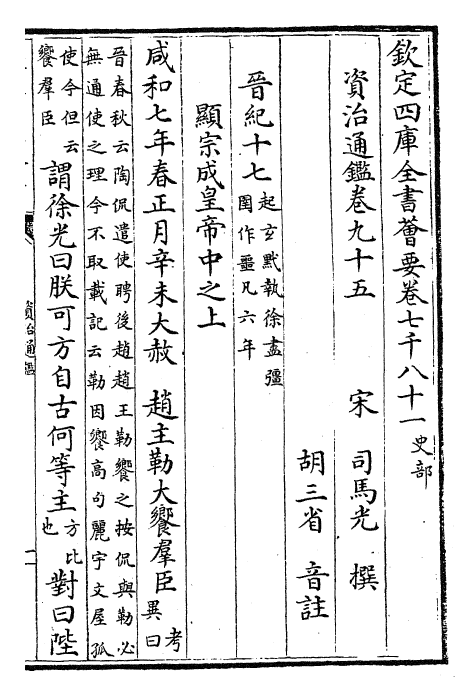 欽定四庫全書薈要卷七千八十一 史部
資治通鑑卷九十五
宋 司馬光 撰
胡三省 音註
晉紀十七 起玄黓執徐盡彊
圉作噩凡六年
顯宗成皇帝中之上
咸和七年春正月辛未大赦 趙主勒大饗羣臣 考
異曰
晉春秋云陶侃遣使聘後趙趙王勒饗之按侃與勒必
無通使之理今不取載記云勒因饗高句麗宇文屋孤
使今但云
饗羣臣 謂徐光曰朕可方自古何等主 方比
也 對曰陛
資治通鑑
一